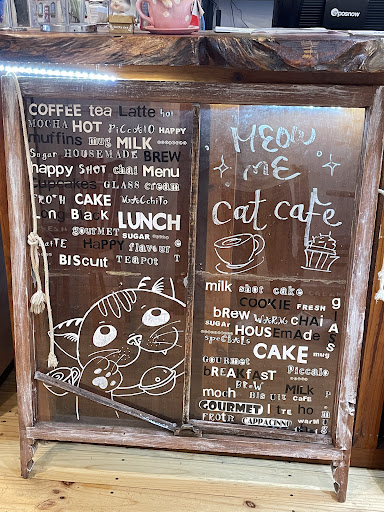 eposnow
COFFEE tea Latte hot
MOCHA HOT PiCCoLO HAPPY
muffins mug MILK
Sugar HOUSEMADE BREW
happy SHOT chai Menu
cupcakes GLASS cream
FROTH CAKE MACCHiTO
Long BLacK LUNCH
gourmet SUGAR
LaTTE HaPPY flavour
BIScuit TEAPOT
MEOW
ME
cat cafe
milk shot cake
COOKIE FRESH g
brew WARM cHAi
SUGAR HOUSEmAde
specials CAKE mug
Gourmet
bREAKfAST Piccolo
BREW MiLK
moch BIScUIT CAFE
GOURMET
FROTH CAPPACINNO warm